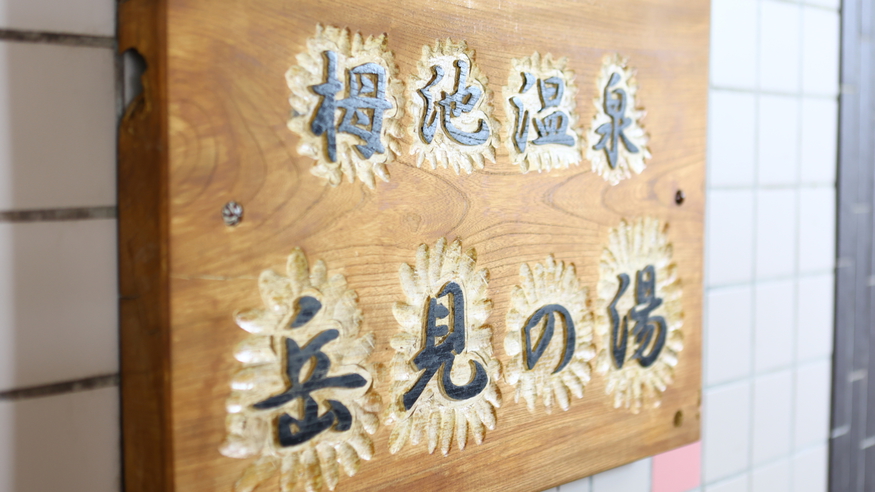 栂池温泉
岳見の湯